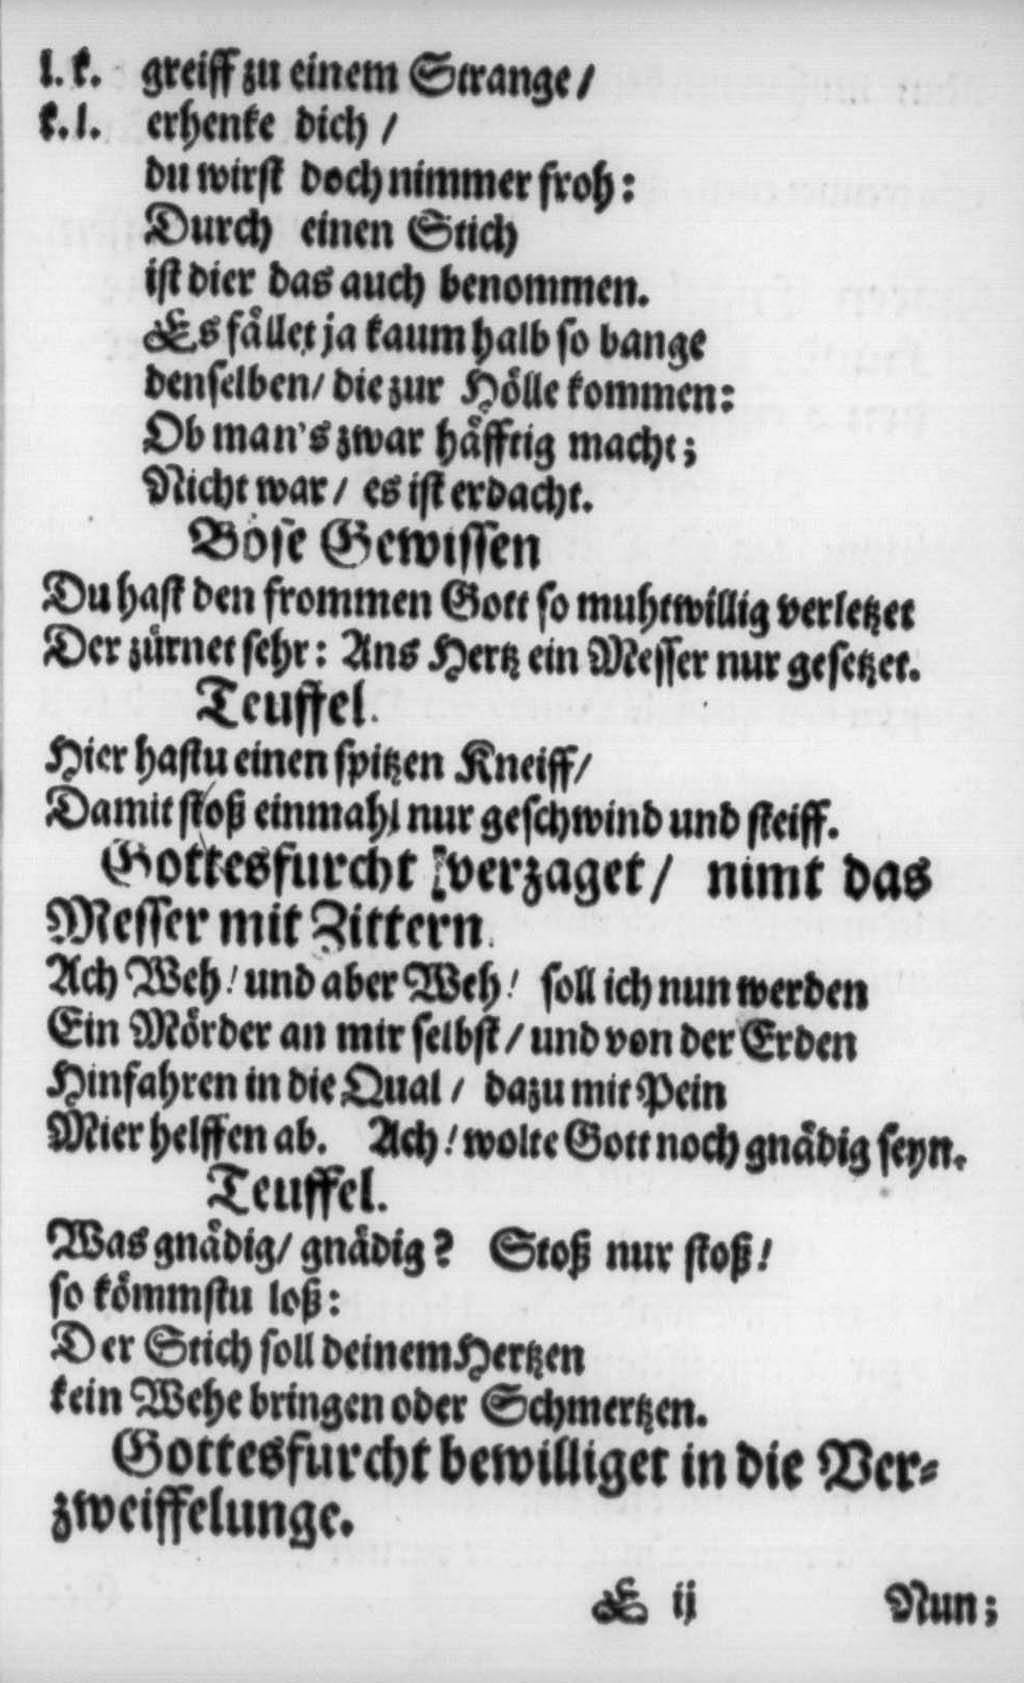 l. k. greiff zu einem Strange /
k. l. erhenke dich /
du wirst doch nimmer froh:
Durch einen Stich
ist dier das auch benommen.
Es fället ja kaum halb so bange
denselben / die zur Hölle kommen:
Ob man's zwar häfftig macht;
Nicht war / es ist erdacht.
Böse Gewissen
Du hast den frommen Gott so muhtwillig verletzet
Der zürnet sehr: Ans Hertz ein Messer nur gesetzet.
Teuffel.
Hier hastu einen spitzen Kneiff /
Damit stoß einmahl nur geschwind und steiff.
Gottesfurcht [verzaget / nimt das
Messer mit Zittern.
Ach Weh! und aber Weh! soll ich nun werden
Ein Mörder an mir selbst / und von der Erden
Hinfahren in die Qual / dazu mit Pein
Mier helffen ab. Ach! wolte Gott noch gnädig seyn.
Teuffel.
Was gnädig / gnädig? Stoß nur stoß!
so kömmstu loß:
Der Stich soll deinem Hertzen
kein Wehe bringen oder Schmertzen.
Gottesfurcht bewilliget in die Ver-
zweiffelunge.
E ij Nun;